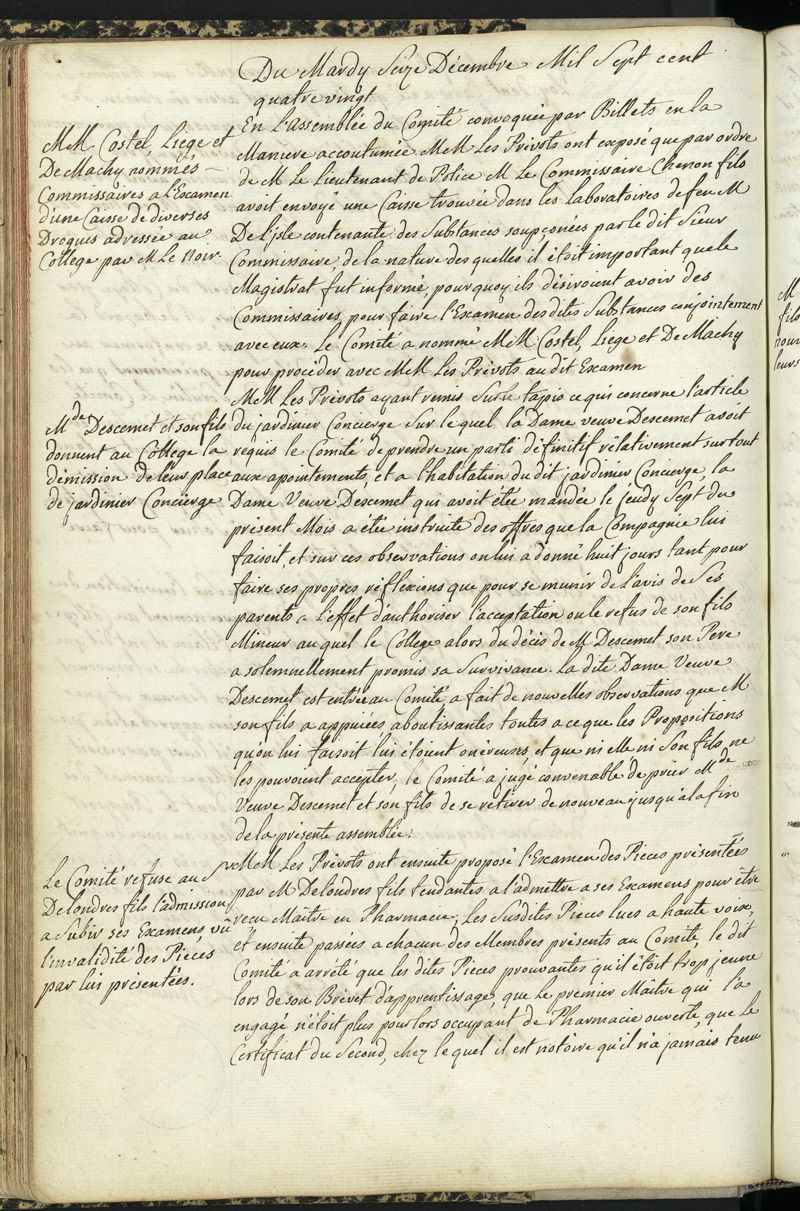 Du Mardy Seize Décembre Mil Sept cent
quatre vingt
MrM. Costel, Liege et
De Machy nommés
Commissaires a l'Examen
d'une Caisse de diverses
Drogues adressée au
College par M Le Noir.
En l'assemblée du Comité convoquée par Billets en la
Maniere accoutumée MrM Les Prévots ont exposé que par ordre
de M Le Lieutenant de Police M Le Commissaire Chenon fils
avoit envoyé une Caisse trouvée dans les Laboratoires de feu M
De L'isle contenante des Substances soupçonées par le dit Sieur
Commissaire, de la nature des quelles il étoit important que le
Magistrat fut informé pourquoy ils désiroient avoir des
Commissaires pour faire l'Examen des dites Substances conjointement
avec eux. Le Comité a nommé MrM Costel, Liege et De Machy
pour procéder avec MrM Les Prévots au dit Examen
Mde Descemet et son fils
donnent au College la
démission de leur place
de jardinier Concierge
MrM Les Prévots ayant remis sur le tapis ce qui concerne l'article
du jardinier Concierge Sur le quel la Dame veuve Descemet avoit
requis le Comité de prendre un parti définitif rélativement surtout
aux apointements, et a l'habitation du dit jardinier Concierge, la
Dame Veuve Descemet qui avoit étée mandée le jeudy Sept du
présent Mois a étée instruite des offres que la Compagnie lui
faisoit, et sur ces observations on lui a donné huit jours tant pour
faire ses propres réflexions que pour se munir de l'avis de Ses
parents a l'effet d'authoriser l'acceptation ou le refus de son fils
Mineur au quel le College alors du décès de M Descemet son Pere
a solemnellement promis sa Survivance. La dite Dame Veuve
Descemet est entrée au Comité a fait de nouvelles observations que M
son fils a appuiées aboutissantes toutes a ce que les Propositions
qu'on lui faisoit lui étoient onéreuses, et que ni elle ni Son fils ne
les pouvoient accepter, le Comité a jugé convenable de prier Mde
Veuve Descemet et son fils de se retirer de nouveau jusqu'a la fin
de la présente assemblée.
Le Comité refuse au Sr
Delondres fils l'admission
a Subir ses Examens, vû
l'invalidité des Pièces
par lui présentées.
MrM Les Prévots ont ensuite proposé l'Examen des Pieces présentées
par M Delondres fils tendantes a l'admettre a ses Examens pour être
recu Maître en Pharmacie; Les Susdites Pieces lues a haute voix,
et ensuite passées a chacun des Membres présents au Comité, le dit
Comité a arrêté que les dites Pièces prouvantes qu'il étoit trop jeune
lors de son Brévet d'apprentissage, que le premier Maître qui l'a
engagé n'étoit plus pour lors occupant de Pharmacie ouverte, que le
Certificat du Second, chez le quel il est notoire qu'il n'a jamais tenu